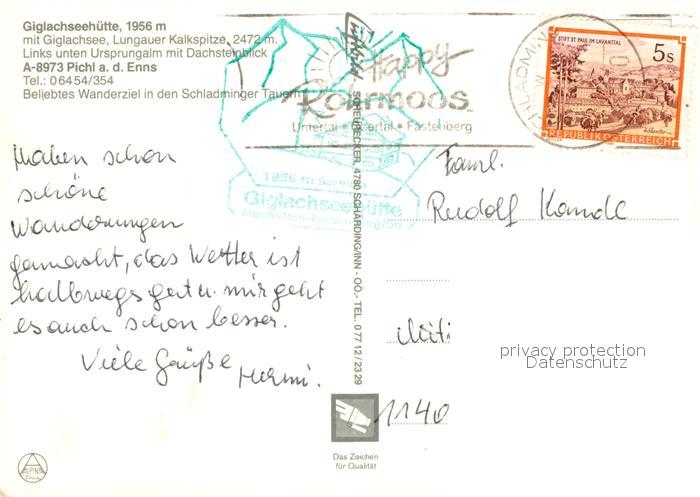 Giglachseehütte, 1956 m
mit Giglachsee, Lungauer Kalkspitze, 2472 m.
Links unten Ursprungalm mit Dachsteinblick
A-8973 Pichl a. d. Enns
Tel.: 0 64 54/354
Beliebtes Wanderziel in den Schladminger Tauern
Happy
Rohrmoos
Untertal • Obertal • Fastenberg
SCHLADMING
STIFT ST. PAUL IM LAVANTTAL
5 S
REPUBLIK ÖSTERREICH
1956 m Seehöhe
Giglachseehütte
Dachstein-Tauern-Region
SCHEURECKER, 4780 SCHÄRDING/INN - OÖ. - TEL. 0 77 12 / 23 29
Haben schon
schöne
Wanderungen
gemacht, das Wetter ist
halbwegs gut u. mir geht
es auch schon besser.
Viele Grüße
Hermi.
Faml.
Rudolf Kandl
1140
privacy protection
Datenschutz
Das Zeichen
für Qualität
ALPINA